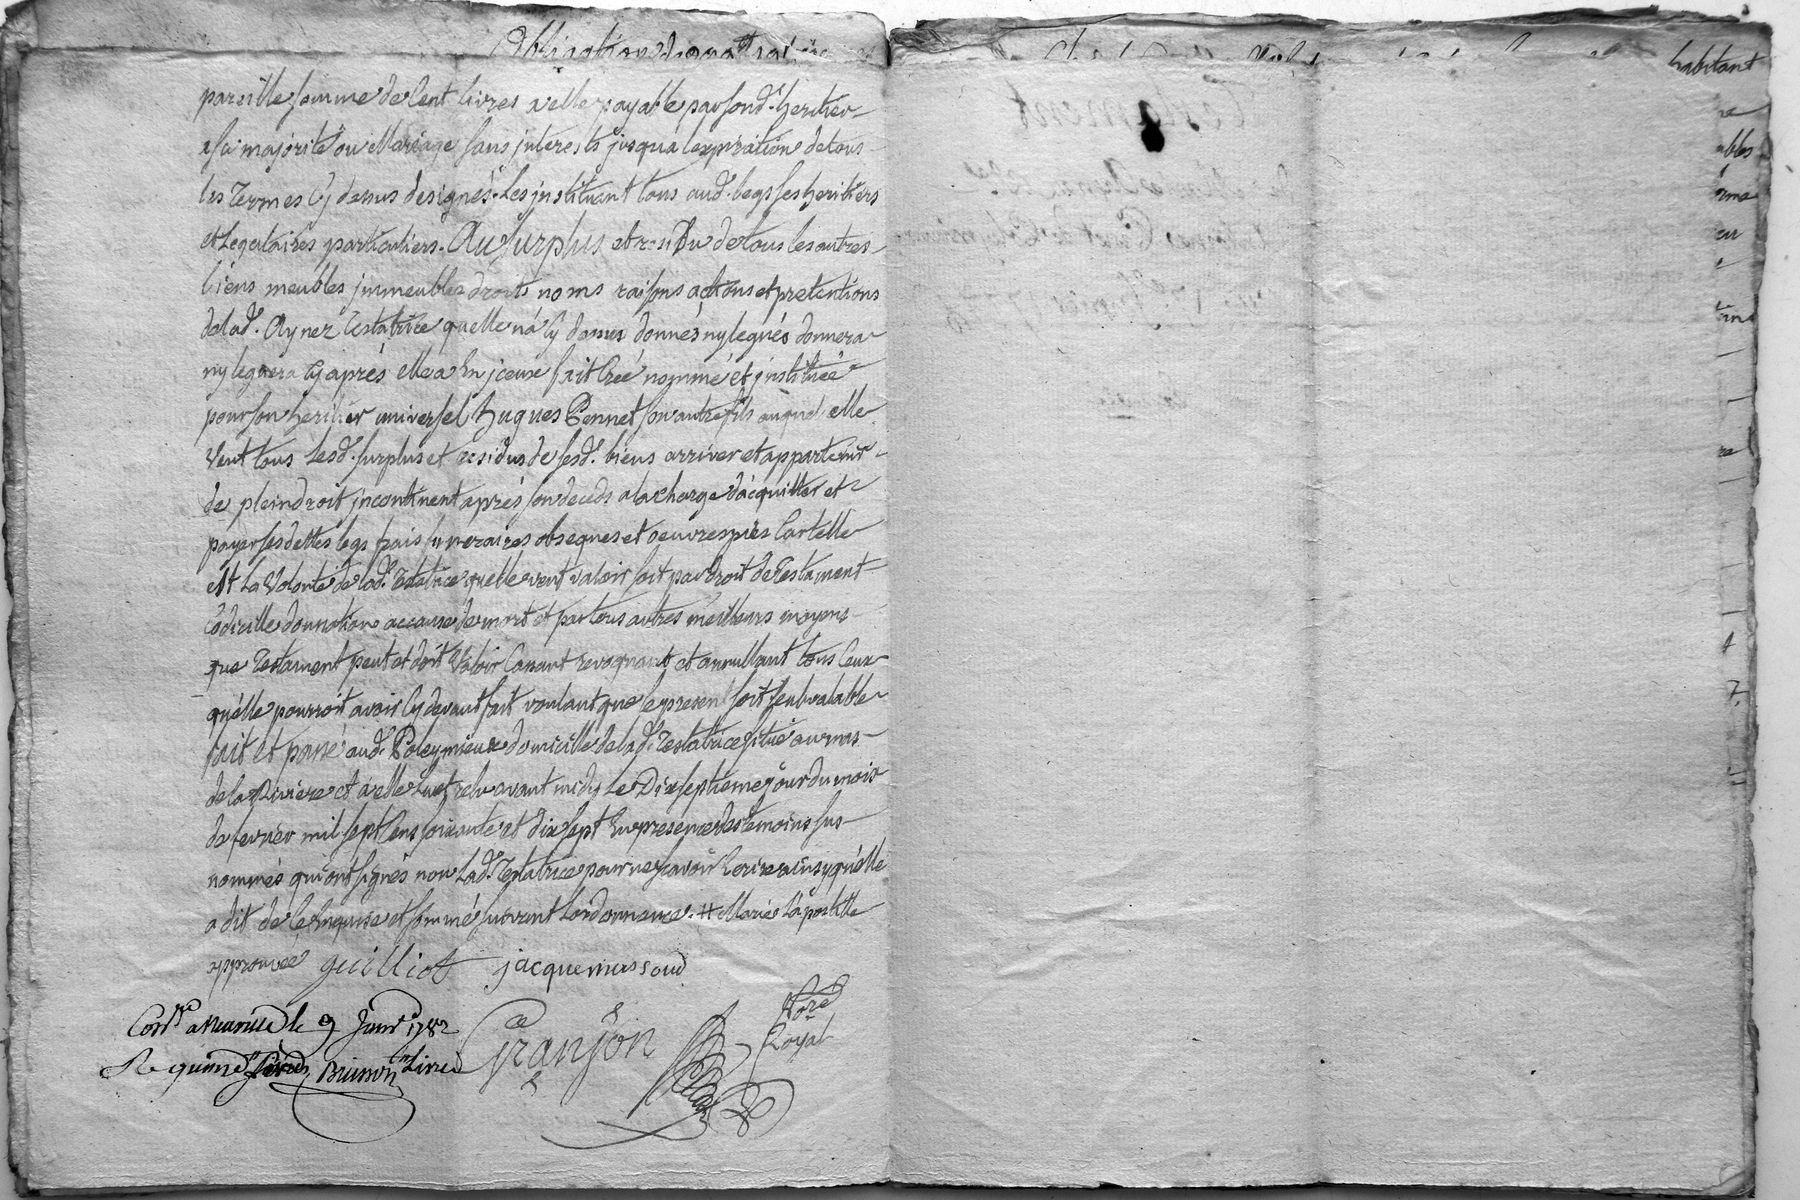 habitant
pareille somme de Cent livres a elle payable par sond. heritier
a sa majorité ou Mariage sans jnterests jusqua lexpiration de tous
les Termes Cy dessus designés. Les jnstituant tous aud. legs ses heritiers
et Legataires particuliers. Au surplus et residu de tous les autres
biens meubles jmmeubles droits noms raisons actions et pretentions
de lad. Aynez Testatrice quelle n'á Cy dessus donnés ny legués donnera
ny leguera Cy aprés elle a En jceux fait Créé nommé et jnstitüé
pour son heritier universel hugues Pennet son autre fils auquel elle
Veut tous Lesd. surplus et residus de sesd. biens arriver et appartenir
de plein droit jncontinent aprés son decéds a la charge d'acquitter et
payer ses dettes legs frais funeraires obseques et oeuvres pies Car telle
est La Volonté de lad. Testatrice quelle veut valoir soit par droit de Testament
Codicille donnation a cause de mort et par tous autres meilleurs moyens
que Testament peut et doit Valoir Cassant revoquant et annullant tous Ceux
qu'elle pourroit avoir Cy devant fait voulant que le present soit seul valable
fait et passé aud. Poleymieux domicille de lad. Testatrice situé au mas
de la Riviere et a elle Lu et relu avant midy Le Dixseptieme jour du mois
de fevrier mil sept Cens soixante et dix sept En presence des temoins sus
nommés qui ont signés non Lad. Testatrice pour ne scavoir Ecrire ainsy qu'elle
a dit de Ce Enquise et sommé suivant Lordonnance. # Marie L'apostille
approuvée guilliot jacquemussoud
Cor.lé a Neuville le 9 Janv. 1782
granjon
No.re
Royal